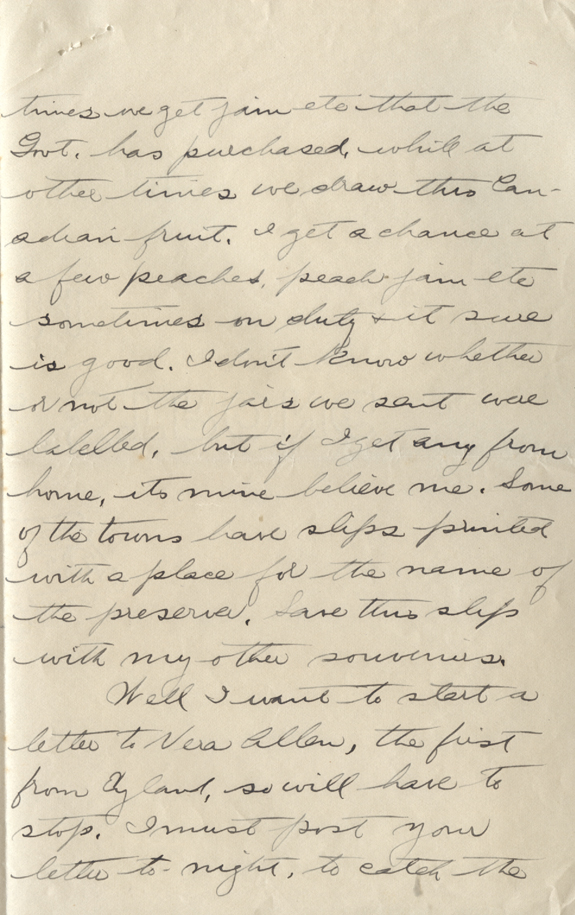 times we get jam etc that the
Govt. has purchased, while at
other times we draw this Can-
adian fruit. I get a chance at
a few peaches, peach jam etc
sometimes on duty & it sure
is good. I don't know whether
or not the jars we sent were
labelled, but if I get any from
home, its mine believe me. Some
of the towns have slips printed
with a place for the name of
the preserve. Save this slip
with my other souvenirs.
Well I want to start a
letter to Vera Allen, the first
from England, so will have to
stop. I must post your
letter to-night, to catch the